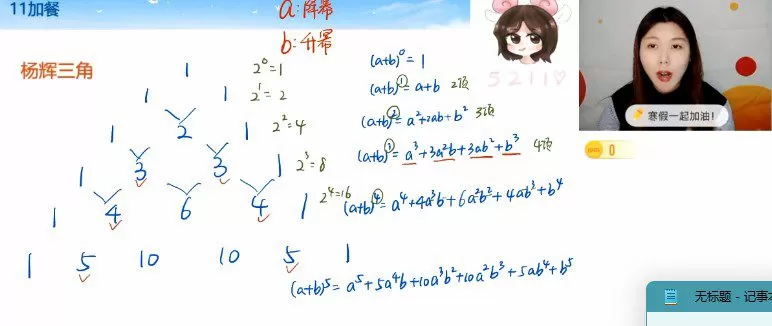 11加餐
a:降幂
b:升幂
杨辉三角
1
1 1
1 2 1
1 3 3 1
1 4 6 4 1
1 5 10 10 5 1
2⁰=1
2¹=2
2²=4
2³=8
2⁴=16
(a+b)⁰=1
(a+b)¹=a+b 2项
(a+b)²=a²+2ab+b² 3项
(a+b)³=a³+3a²b+3ab²+b³ 4项
(a+b)⁴=a⁴+4a³b+6a²b²+4ab³+b⁴
(a+b)⁵=a⁵+5a⁴b+10a³b²+10a²b³+5ab⁴+b⁵
5211♡
寒假一起加油！
0
无标题 - 记事本